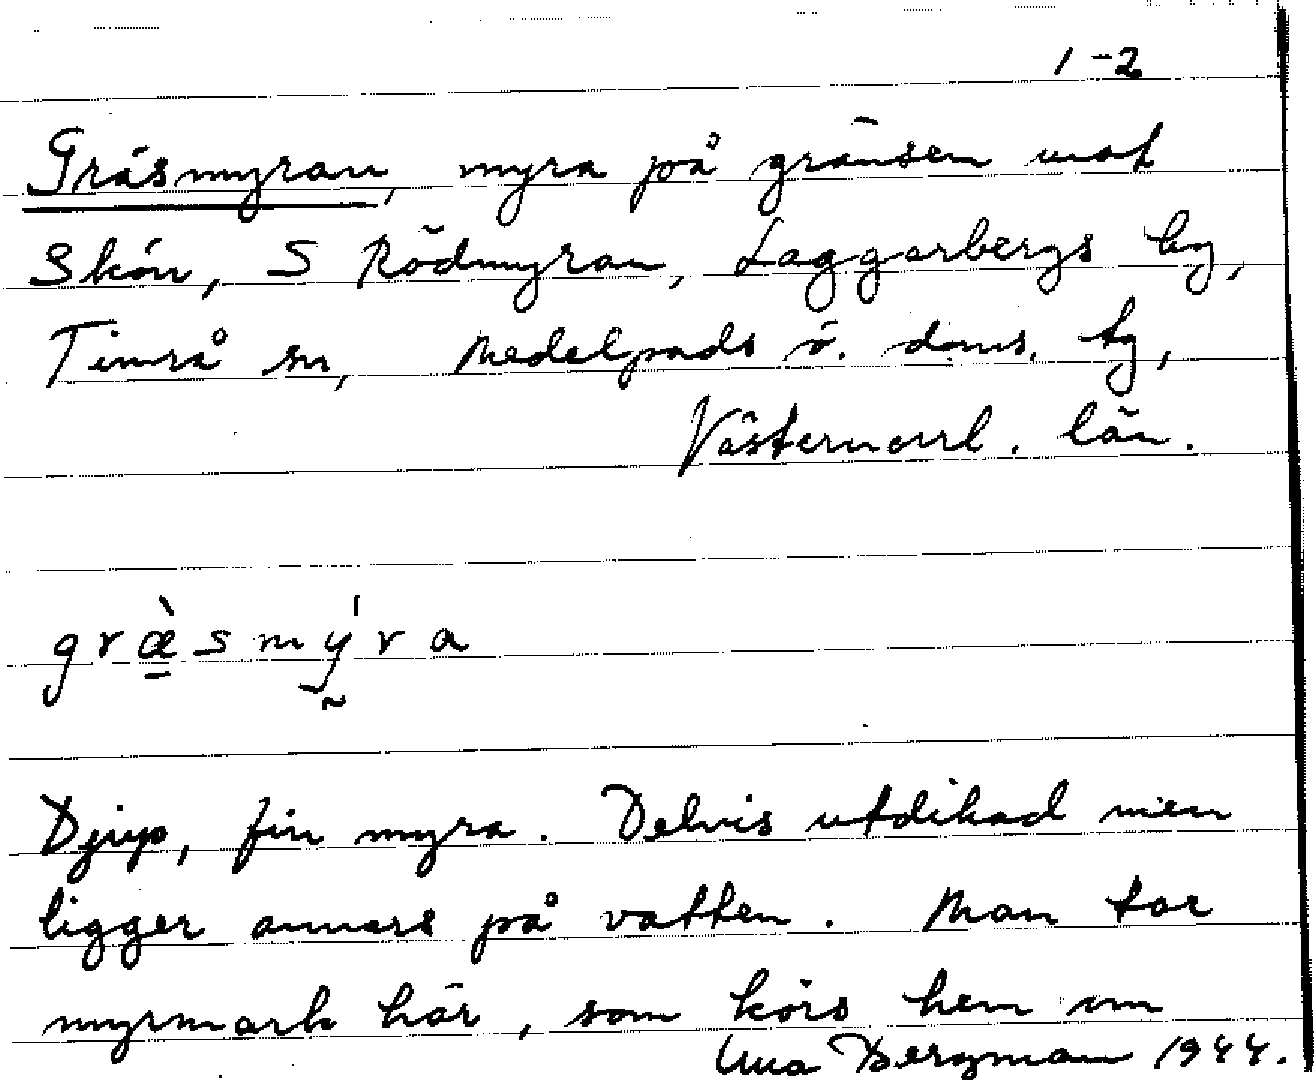 1-2
Gräsmyran, myra på gränsen mot
Skön, S Rödmyran, Laggarbergs by,
Timrå sn, Medelpads ö. doms. tg,
Västernorrl. län.
græ̀smýra
Djup, fin myra. Delvis utdikad men
ligger annars på vatten. Man tar
myrmark här, som körs hem om
Una Bergman 1944.